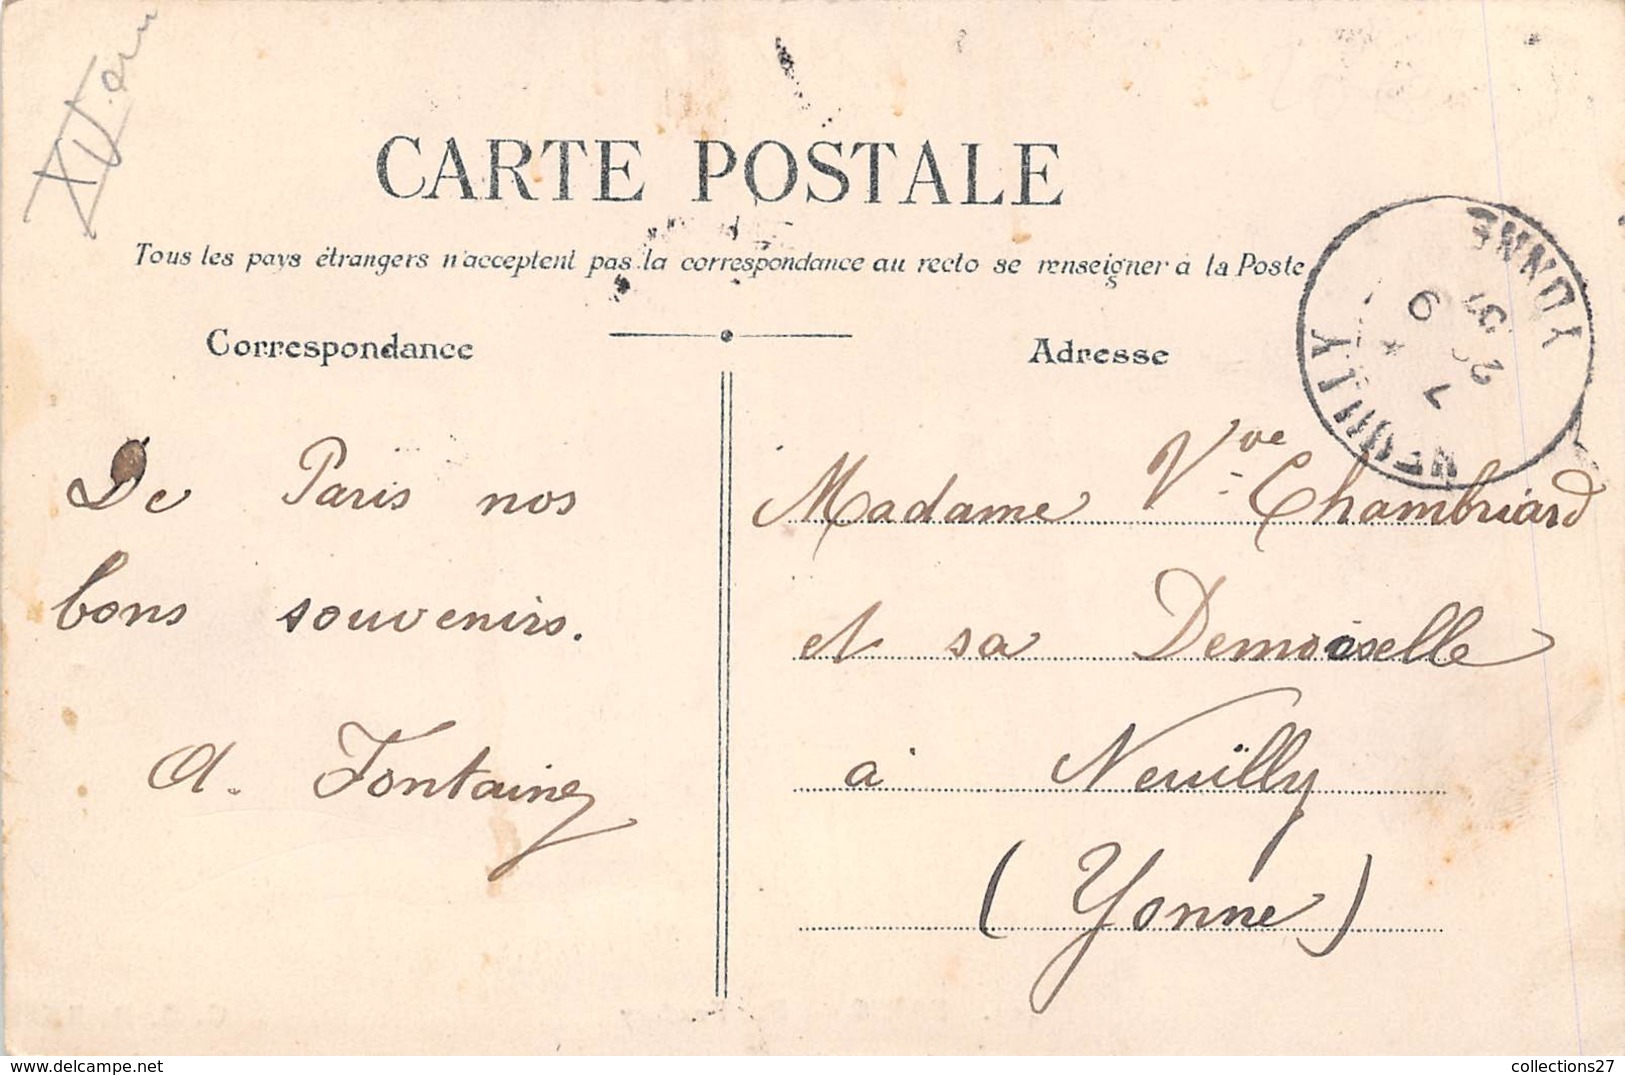 XV
CARTE POSTALE
Tous les pays étrangers n'acceptent pas la correspondance au recto se renseigner à la Poste
Correspondance
Adresse
De Paris nos
bons souvenirs.
A. Fontaine
Madame Vve Chambriard
et sa Demoiselle
à Neuilly
(Yonne)
NEUILLY
YONNE
collections27